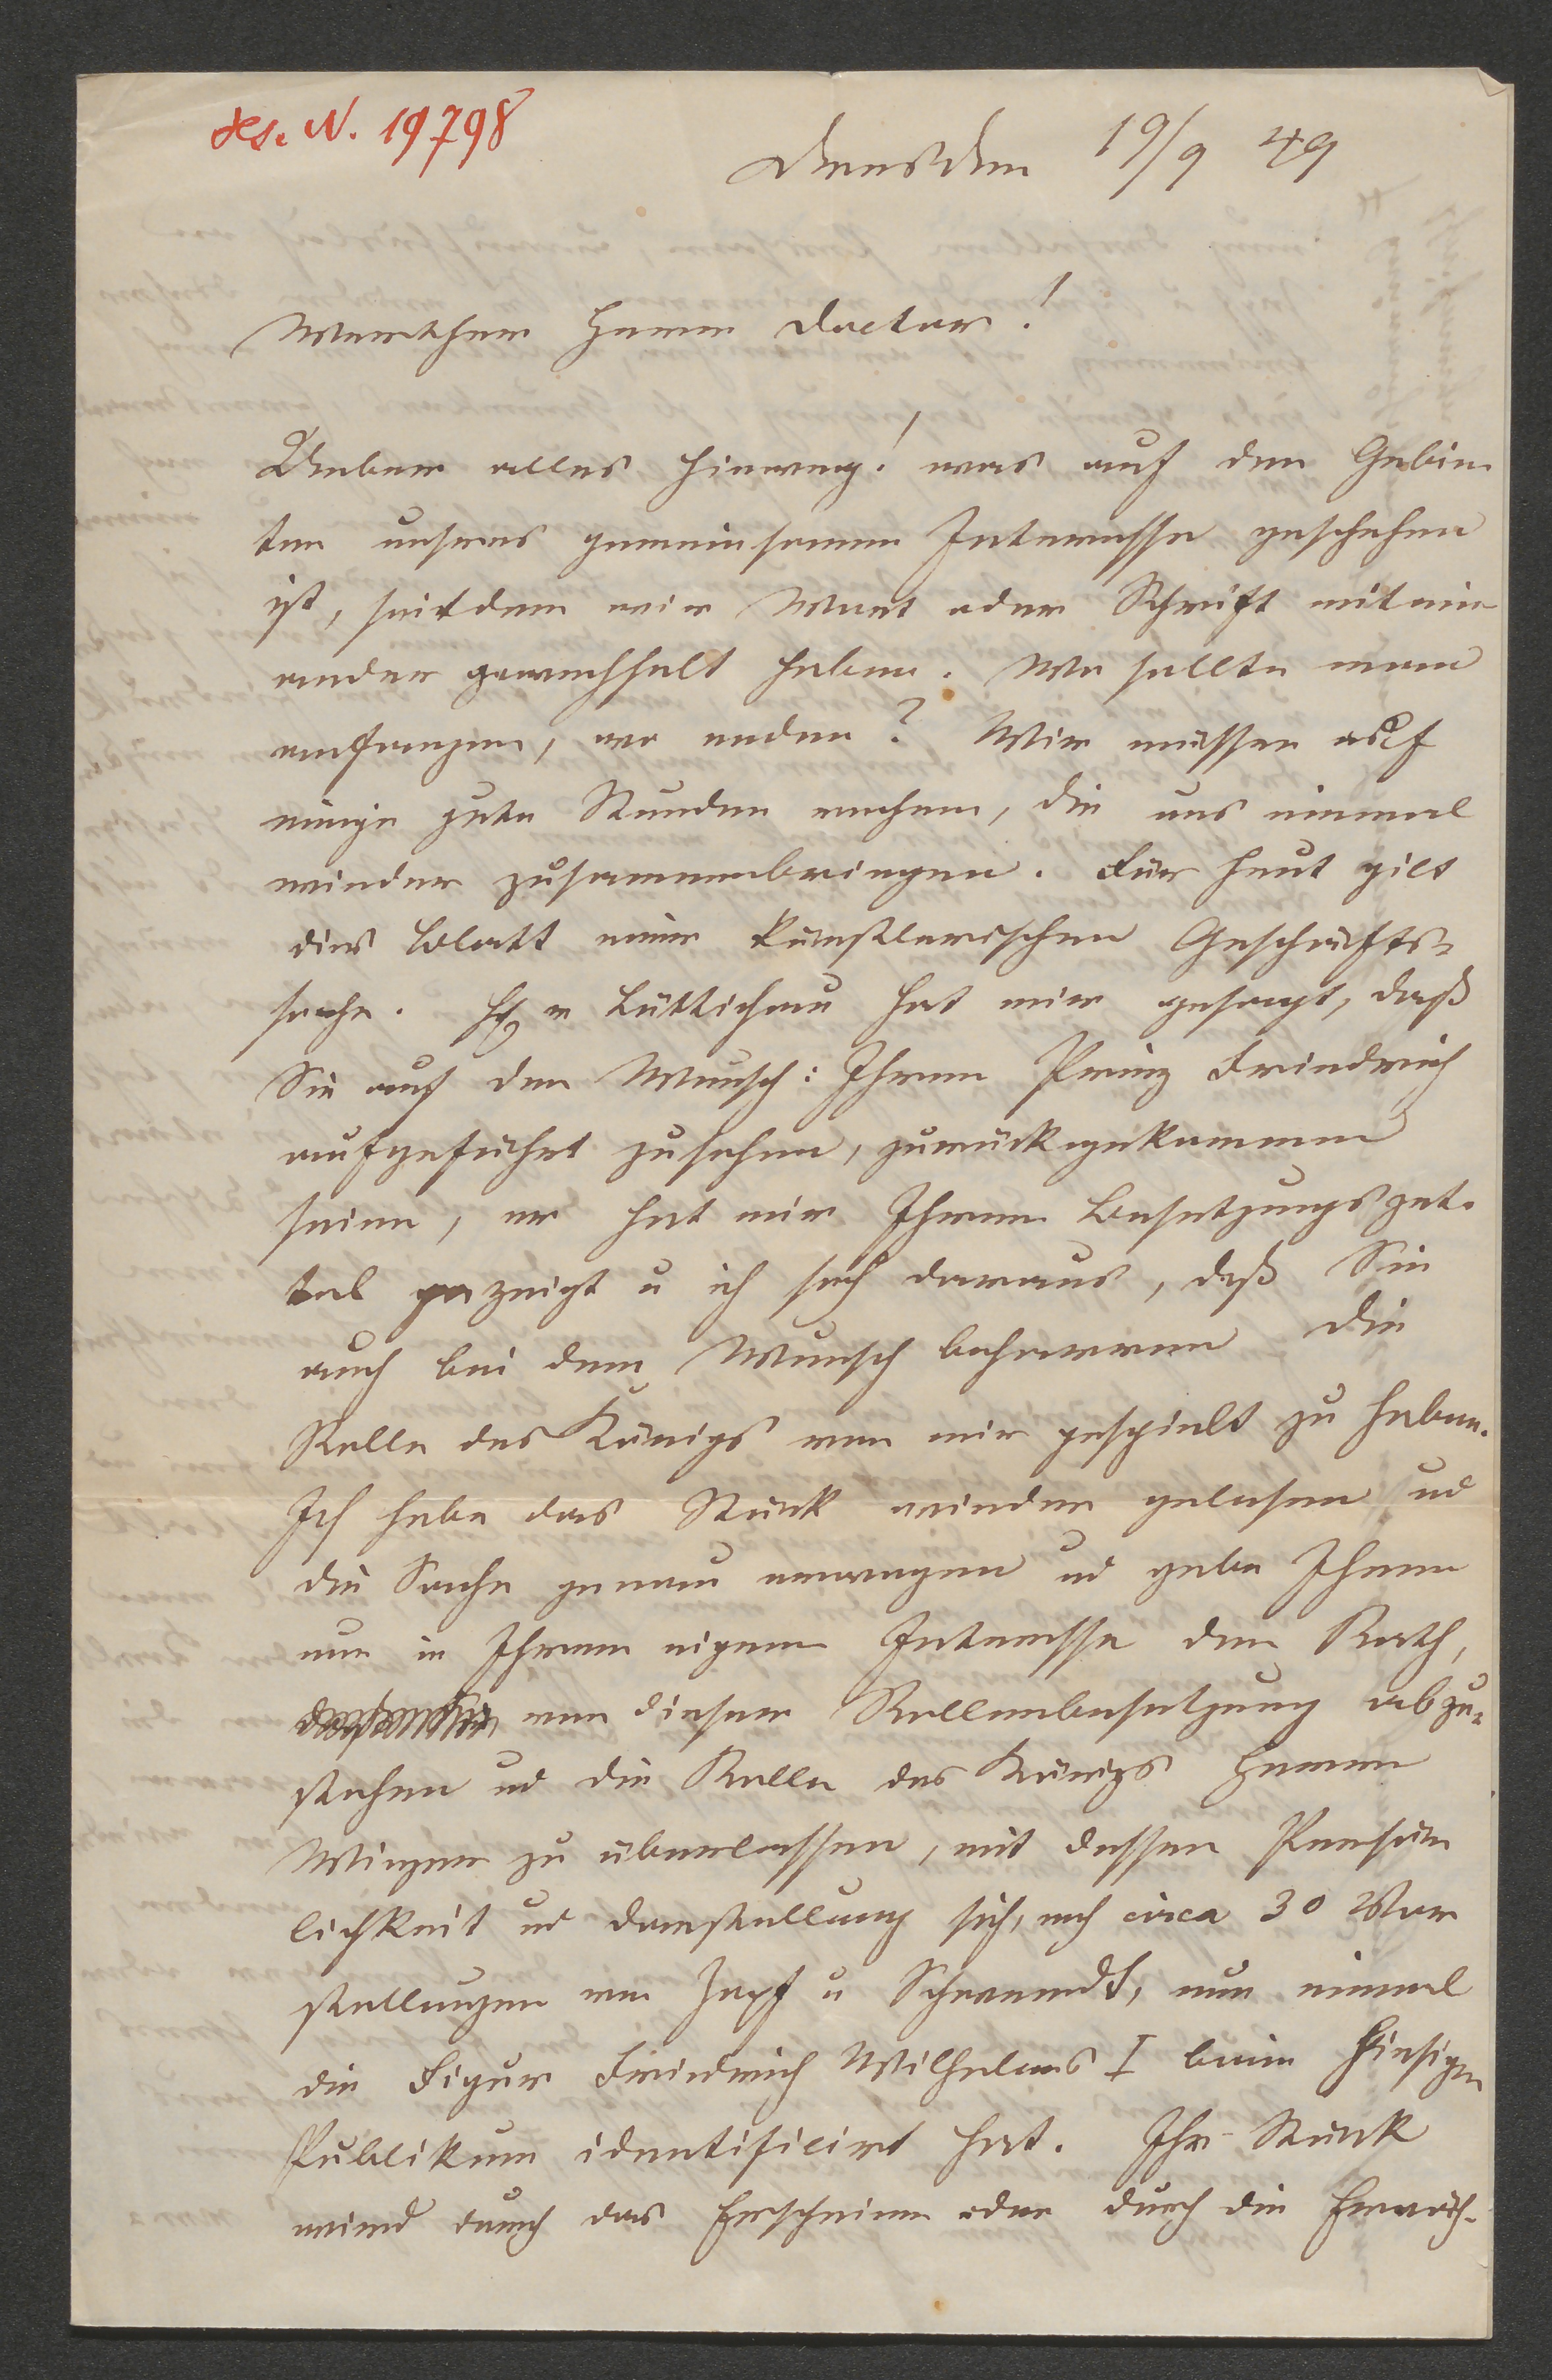 H.I.N. 19798
Dresden 19/9 49
Werther Herr Doctor!
Ueber alles hinweg! was auf den Gebie-
ten unsres gemeinsamen Interesse geschehen
ist, seitdem wir Wort oder Schrift mitein-
ander gewechselt haben. Wo sollte man
anfangen, wo enden? Wir müssen auf
einige gute Stunden rechnen, die uns einmal
wieder zusammenbringen. Für heut gilt
dies Blatt einer künstlerischen Geschäfts-
sache. H v Lüttichau hat mir gesagt, daß
Sie auf den Wunsch: Ihren Prinz Friedrich
aufgeführt zu sehen, zurückgekommen
seien, er hat mir Ihren Besetzungszet-
tel gezeigt u ich sah daraus, daß Sie
auch bei dem Wunsch beharren die
Rolle des Königs von mir gespielt zu haben.
Ich habe das Stück wieder gelesen ud
die Sache genau erwogen ud gebe Ihnen
nun in Ihrem eignen Interesse den Rath,
von dieser Rollenbesetzung abzu-
stehen ud die Rolle des Königs Herrn
Winger zu überlassen, mit dessen Persön
lichkeit ud Darstellung sich, nach circa 30 Vor
stellungen von Zopf u Schwerdt, nun einmal
die Figur Friedrich Wilhelms I beim hiesigen
Publikum identificirt hat. Ihr Stück
wird durch das Erscheinen oder durch die Erwäh-